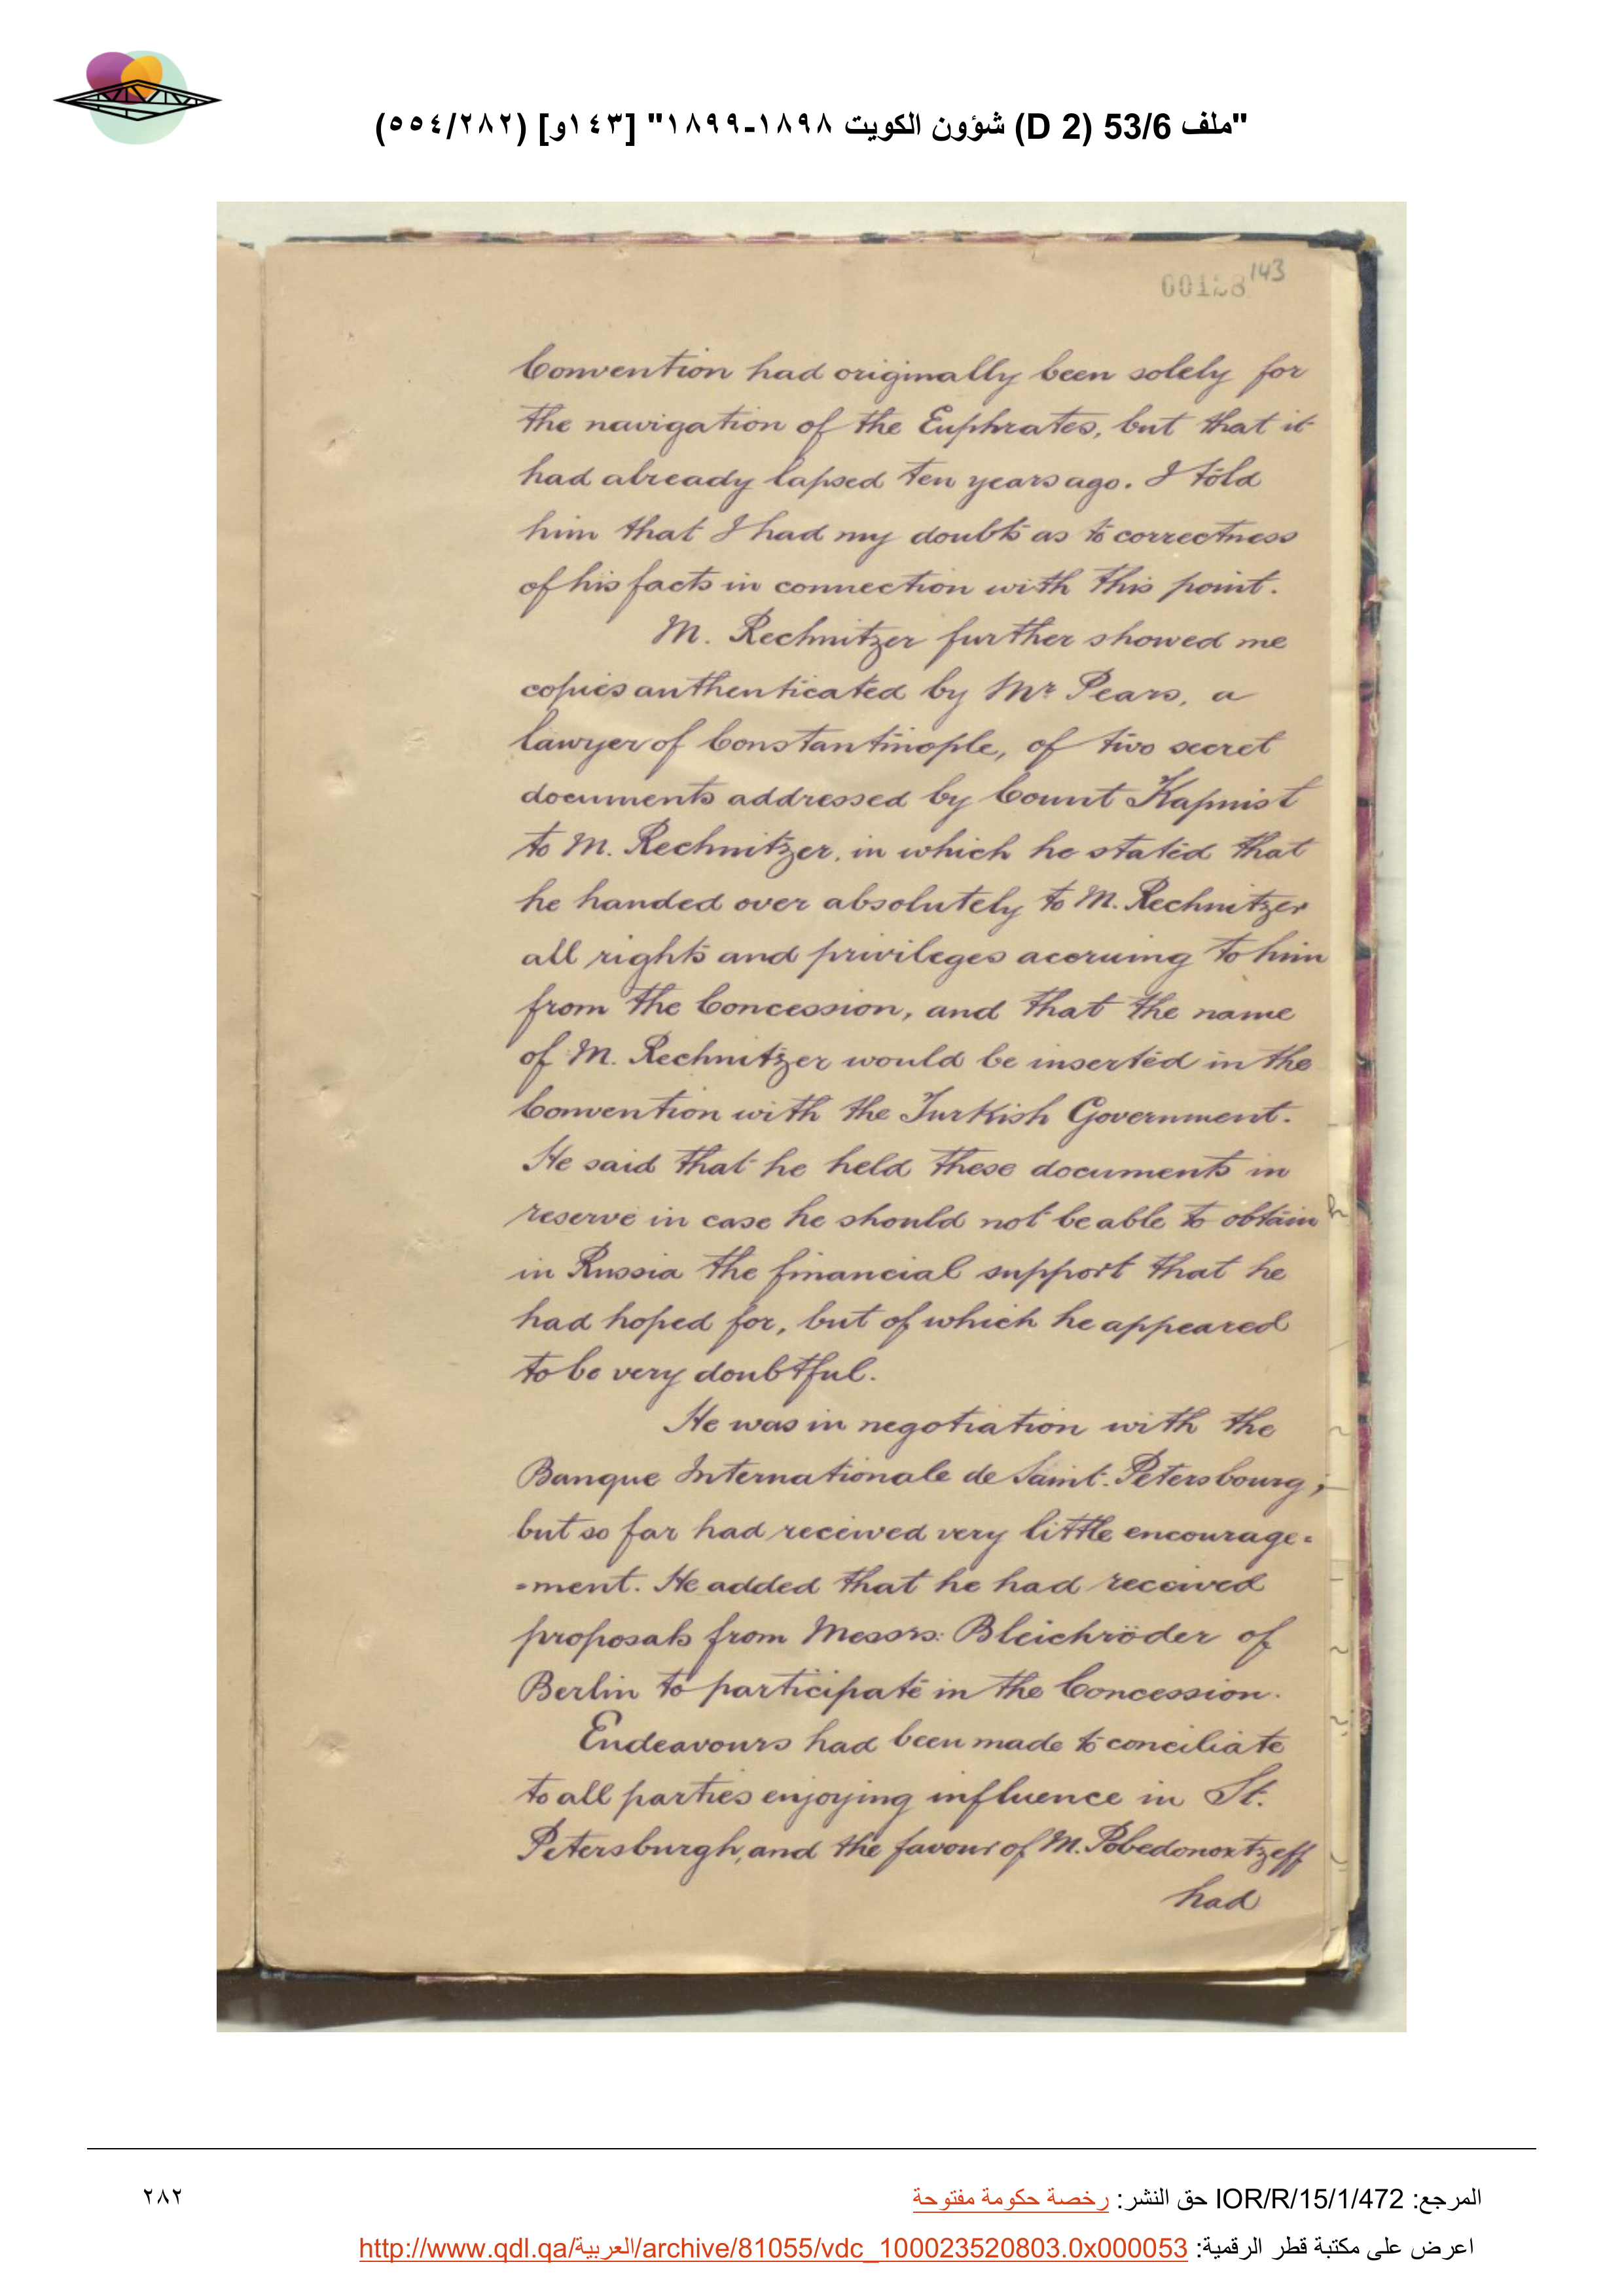 "ملف 53/6 (D 2) شؤون الكويت ١٨٩٨-١٨٩٩" [١٤٣و] (٥٥٤/٢٨٢)
143
Convention had originally been solely for
the navigation of the Euphrates, but that it
had already lapsed ten years ago. I told
him that I had my doubts as to correctness
of his facts in connection with this point.
M. Rechnitzer further showed me
copies authenticated by Mr Pears, a
lawyer of Constantinople, of two secret
documents addressed by Count Kapnist
to M. Rechnitzer, in which he stated that
he handed over absolutely to M. Rechnitzer
all rights and privileges accruing to him
from the Concession, and that the name
of M. Rechnitzer would be inserted in the
Convention with the Turkish Government.
He said that he held these documents in
reserve in case he should not be able to obtain
in Russia the financial support that he
had hoped for, but of which he appeared
to be very doubtful.
He was in negotiation with the
Banque Internationale de Saint-Petersbourg,
but so far had received very little encourage=
=ment. He added that he had received
proposals from Messrs: Bleichröder of
Berlin to participate in the Concession.
Endeavours had been made to conciliate
to all parties enjoying influence in St.
Petersburgh, and the favour of M. Pobedonoxtzeff
had
المرجع: IOR/R/15/1/472 حق النشر: رخصة حكومة مفتوحة
٢٨٢
اعرض على مكتبة قطر الرقمية: http://www.qdl.qa/العربية/archive/81055/vdc_100023520803.0x000053